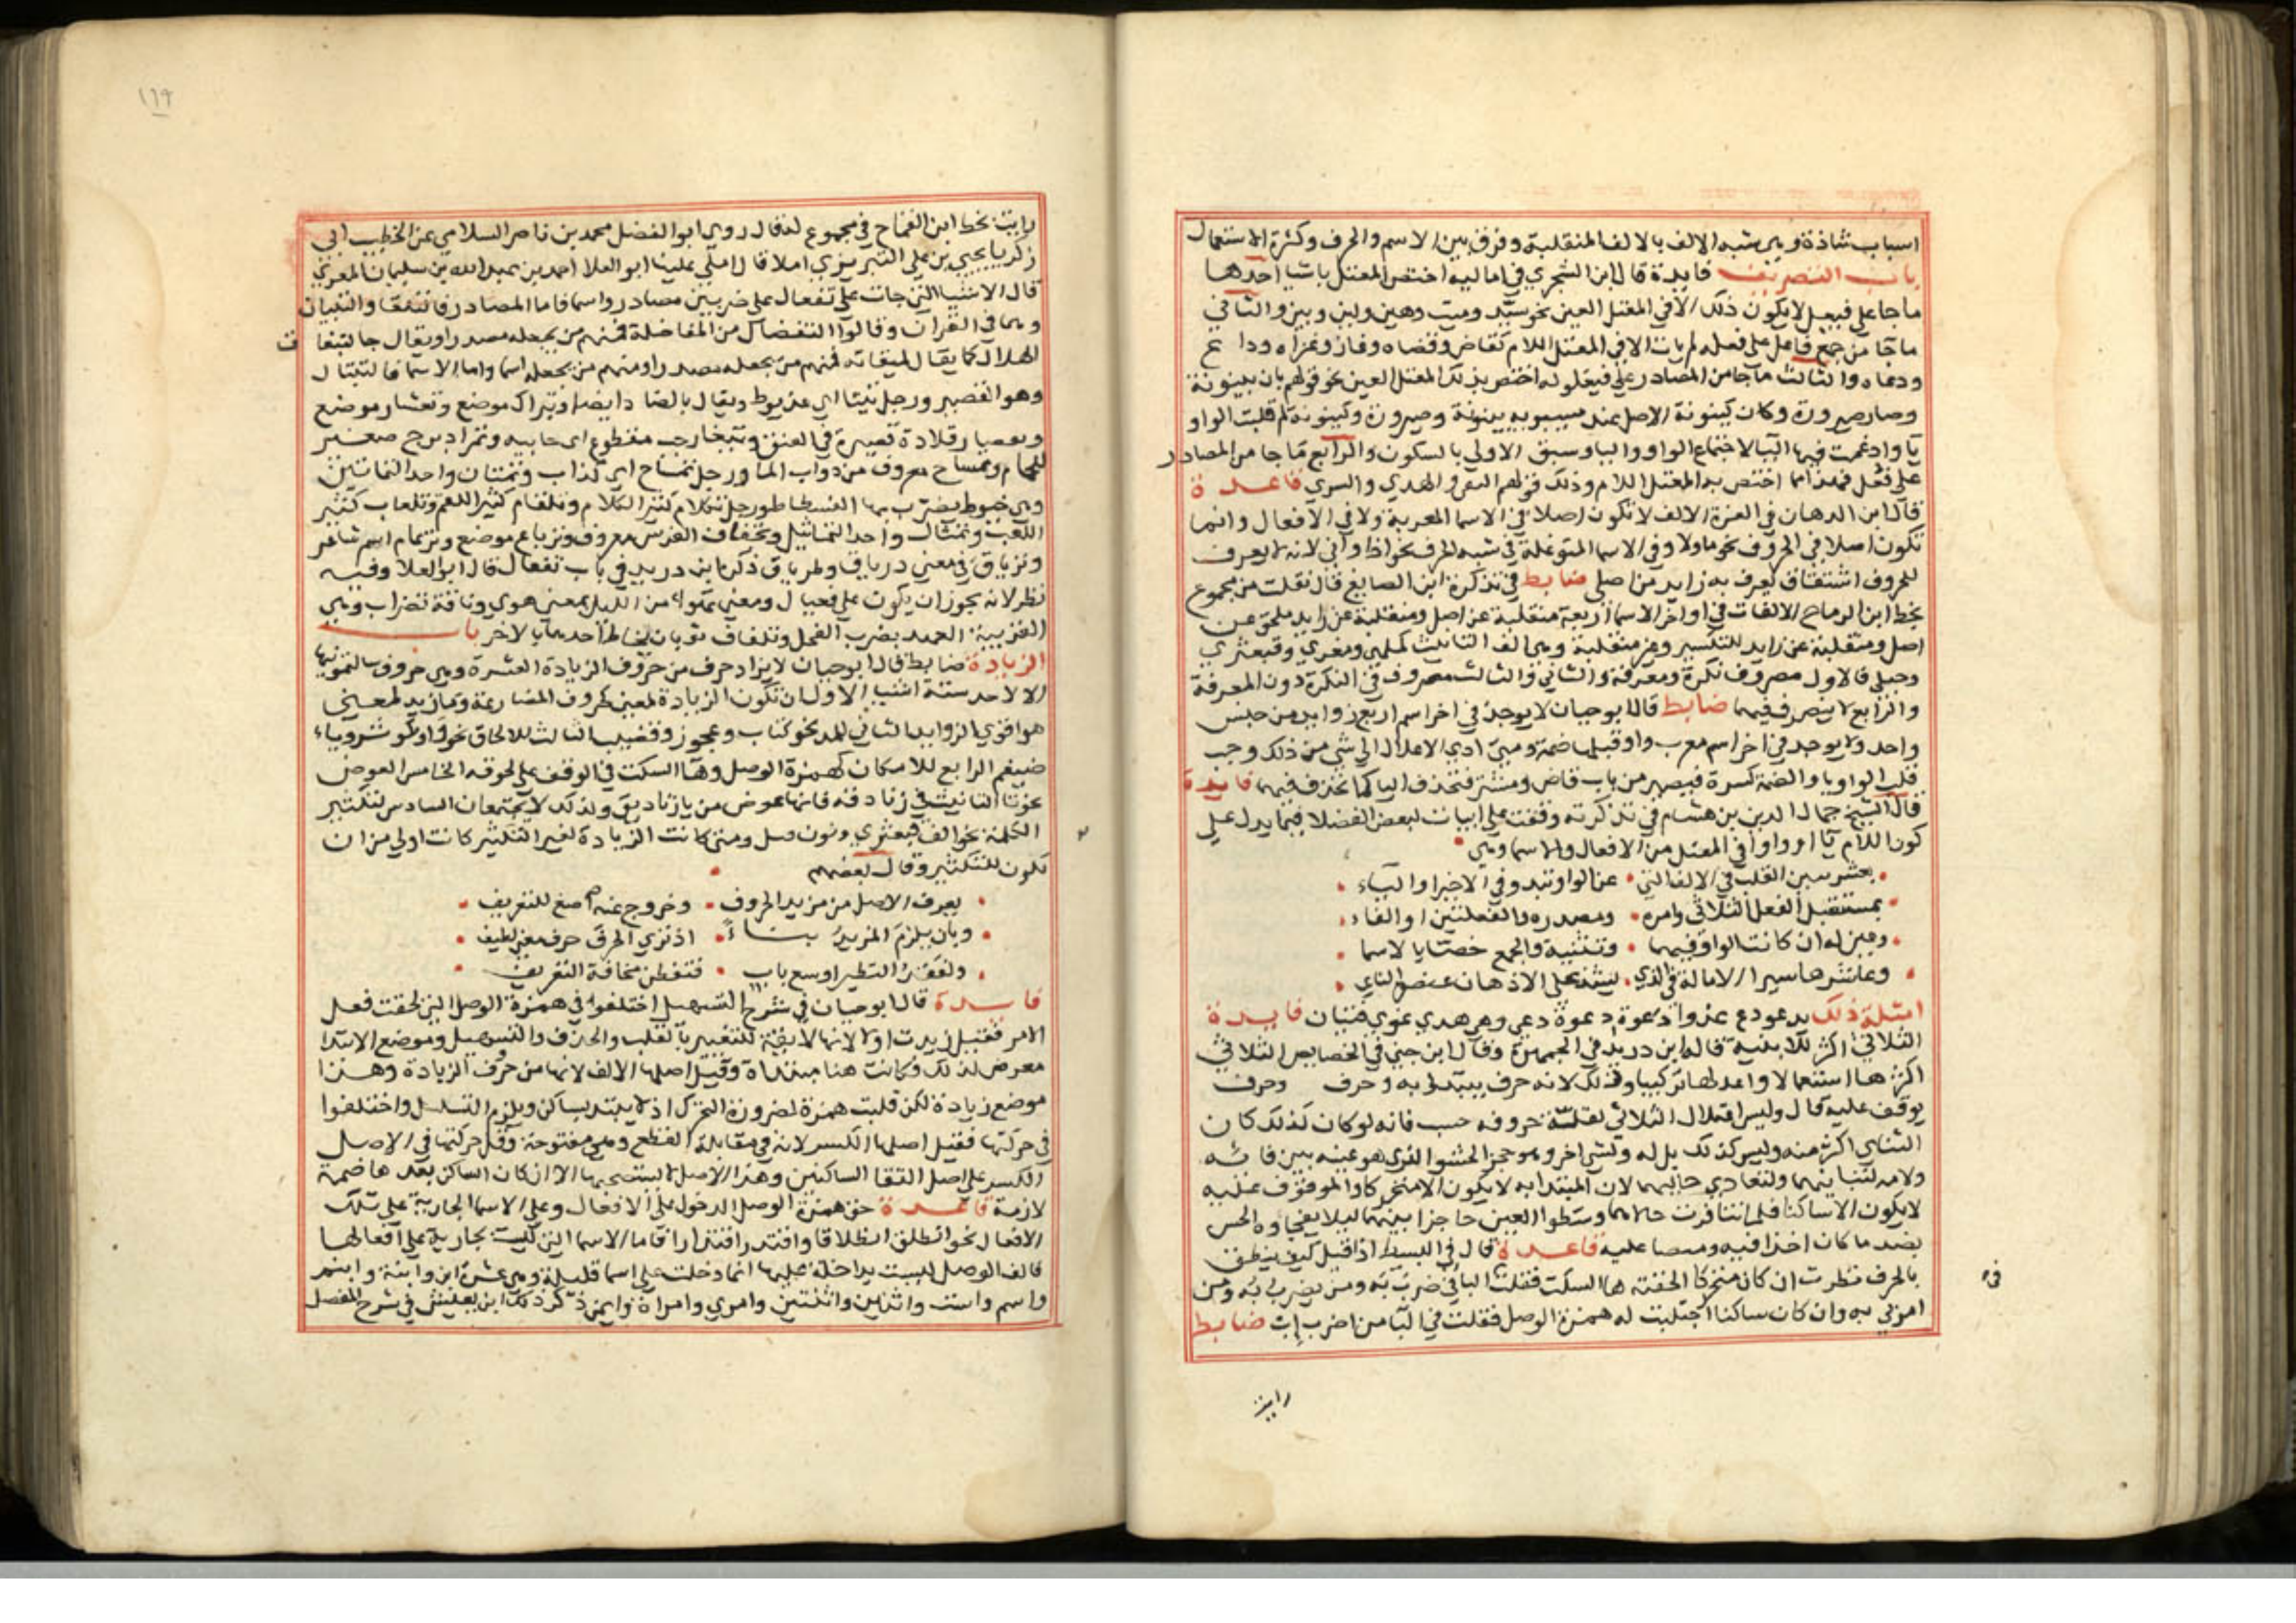 اسباب شاذة وهي شبه الالف بالالف المنقلبة وفرق بين الاسم والحرف وكثرة الاستعمال
باب التصريف فايدة قال ابن الشجري في اماليه اختص المعتل باشيا احدها
ما جا على فيعل لا يكون ذلك الا في المعتل العين نحو سيد وميت وهين ولين وبين والثاني
ما جا من جمع فاعل على فعله لم يات الا في المعتل اللام كقاض وقضاه وغاز وغزاه وداع
ودعاه والثالث ما جا من المصادر على فيعلوله اختص بذلك المعتل العين نحو قولهم بان بينونة
وصار صيرورة وكان كينونة الاصل عند سيبويه بينونة وصيرورة وكينونة ثم قلبت الواو
يا وادغمت فيها اليا لاجتماع الواو واليا وسبق الاولى بالسكون والرابع ما جا من المصادر
على فعل فهذا مما اختص به المعتل اللام وذلك قولهم التقى والهدي والسري قاعدة
قال ابن الدهان في الغرة الالف لا تكون اصلا في الاسما المعربة ولا في الافعال وانما
تكون اصلا في الحروف نحو ما ولا وفي الاسما المتوغلة في شبه الحرف نحو اذا وانى لانه لا يعرف
للحروف اشتقاق يعرف به زايد من اصلي ضابط في تذكرة ابن الصايغ قال نقلت من مجموع
بخط ابن الرماح الالفات في اواخر الاسما اربعة منقلبة عن اصل ومنقلبة عن زايد ملحق عن
اصل ومنقلبة عن زايد للتكسير وغير منقلبة وهي الف التانيث كملهى ومغزي وقبعثري
وحبلى فالاول مصروف نكرة ومعرفة والثاني والثالث مصروف في النكرة دون المعرفة
والرابع لا ينصرف فيهما ضابط قال ابو حيان لا يوجد في اخر اسم اربع زوايد من جنس
واحد ولا يوجد في اخر اسم معرب واو قبلها ضمة ومتى ادي الاعلال الى شي من ذلك وجب
قلب الواو يا والضمة كسرة فيصير من باب قاض ومشتر فتحذف اليا كما تحذف فيهما فايدة
قال الشيخ جمال الدين بن هشام في تذكرته وقفت على ابيات لبعض الفضلا فيما يدل على
كون اللام يا او واوا في المعتل من الافعال والاسما وهي
بعشر يبين القلب في الالف التي عن الواو تبدو في الاخير او الياء
بمستقبل الفعل الثلاثي وامره ومصدره والفعلتين والفاء
وعين له ان كانت الواو فيهما وتثنية والجمع خصا بالاسما
وعاشرها سير الامالة في الذي يشذ على الاذهان عنصر الناي
امثلة ذلك يدعو دع غزوا دعوة دعوة دعي وهي هدي غوي فتيان فايدة
الثلاثي اكثر الابنية قاله ابن دريد في الجمهرة وقال ابن جني في الخصايص الثلاثي
اكثرها استعمالا واعدلها تركيبا وذلك لانه حرف يبتدا به وحرف وحرف
يوقف عليه قال وليس اعتلال الثلاثي لقلة حروفه حسب فانه لو كان كذلك كان
الثنائي اكثر منه وليس كذلك بل له ولشي اخر وهو حجز الحشو الذي هو عينه بين فائه
ولامه لتباينهما ولتعادي حاليهما لان المبتدا به لا يكون الا متحركا والموقوف عليه
لا يكون الا ساكنا فلما تنافرت حالاهما وسطوا العين حاجزا بينهما ليلا يفجاوه الحس
بضد ما كان اخذا فيه ومنصبا عليه قاعدة قال في البسيط اذا قيل كيف ينطق
بالحرف نظرت ان كان متحركا الحقته ها السكت فقلت في البا في ضرب به ومن يضرب به ومن
امرني به وان كان ساكنا اجتلبت له همزة الوصل فقلت في البا من اضرب اب ضابط
رايت
رايت بخط ابن القماح في مجموع له قال روي ابو الفضل محمد بن ناصر السلامي عن الخطيب ابي
زكريا يحيي بن علي التبريزي املا قال املي علينا ابو العلا احمد بن عبد الله بن سليمان المعري
قال الاشيا التي جات على تفعال على ضربين مصادر واسما فاما المصادر فالتلقا والتبيان
وهما في القران وقالوا التنضال من المفاضلة فمنهم من يجعله مصدرا ويقال جا لتيفاق
الهلال كما يقال لميقاته فمنهم من يجعله مصدرا ومنهم من يجعله اسما واما الاسما فالتنبال
وهو القصير ورجل تيتا اي عذيوط ويقال بالضاد ايضا وتبراك موضع وتعشار موضع
وتقصار قلادة قصيرة في العنق وتيغار حب مقطوع اي خابية وتمراد برج صغير
للحمام وتمساح معروف من دواب الما ورجل تمساح اي كذاب وتمتان واحد التماتين
وهي خيوط يضرب بها الفسطاط ورجل تكلام كثير الكلام وتلقام كثير اللقم وتلعاب كثير
اللعب وتمثال واحد التماثيل وتجفاف الفرس معروف وترباع موضع وترعام اسم شاعر
وترياق في معني درياق وطرياق ذكره ابن دريد في باب تفعال قال ابو العلا وفيه
نظر لانه يجوز ان يكون على فعيال ومضى تهوا من الليل بمعنى هوي وناقة تضراب وهي
القريبة العهد بضرب الفحل وتلفاف ثوبان يخاط احدهما بالاخر باب
الزيادة ضابط قال ابو حيان لا يزاد حرف من حروف الزيادة العشرة وهي حروف سالتمونيها
الا لاحد ستة اشيا الاول ان تكون الزيادة لمعنى كحروف المضارعة وما زيد لمعني
هو اقوي الزوايد الثاني للمد نحو كتاب وعجوز وقضيب الثالث للالحاق نحو واو كوثر وياء
ضيغم الرابع للامكان كهمزة الوصل وها السكت في الوقف على نحو قه الخامس العوض
نحو تا التانيث في زنادقة فانها عوض من يا زناديق ولذلك لا يجتمعان السادس لتكثير
الكلمة نحو الف قبعثري ونون ومتى كانت الزيادة لغير التكثير كانت اولى من ان
تكون للتكثير وقال بعضهم
يعرف الاصل من مزيد الحروف وخروج عنه اصغ للتعريف
وبان يلزم المزيد بناء اذ تري الحرف حرف معنى لطيف
ولفقد النظير اوسع باب فتفطن مخافة التعريف
فايدة قال ابو حيان في شرح التسهيل اختلفوا في همزة الوصل التي لحقت فعل
الامر فقيل زيدت اولا لانها لايقة للتغيير بالقلب والحذف والتسهيل وموضع الابتدا
معرض لذلك فكانت هنا مبتداة وقيل اصلها الالف لانها من حروف الزيادة وهذا
موضع زيادة لكن قلبت همزة لضرورة التحرك اذ لا يبتدا بساكن ويلزم التسلسل واختلفوا
في حركتها فقيل اصلها الكسر لانه في مقابلة القطع وهي مفتوحة وقيل حركتها في الاصل
الكسر على اصل التقا الساكنين وهذا الاصل لا يستصحبها الا ان كان الساكن بعدها ضمة
لازمة قاعدة حق همزة الوصل الدخول على الافعال وعلى الاسما الجارية على تلك
الافعال نحو انطلق انطلاقا واقتدر اقتدارا فاما الاسما التي ليست بجارية على افعالها
فالف الوصل ليست بداخلة عليها انما دخلت على اسما قليلة وهي عشرة ابن وابنة وابنم
واسم واست واثنين واثنتين وامري وامراة وايمن ذكر ذلك ابن يعيش في شرح المفصل